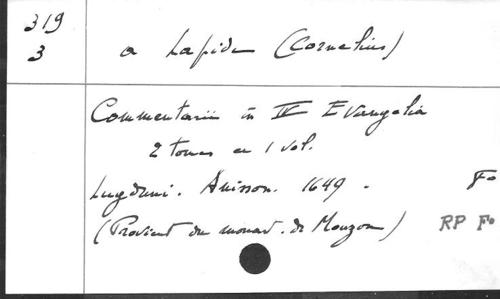 319
3
a Lapide (Cornelius)
Commentarii in IV Evangelia
2 tomes en 1 vol.
Lugduni. Anisson. 1649. Fo
(Provient du monast. de Mouzon) RP Fo